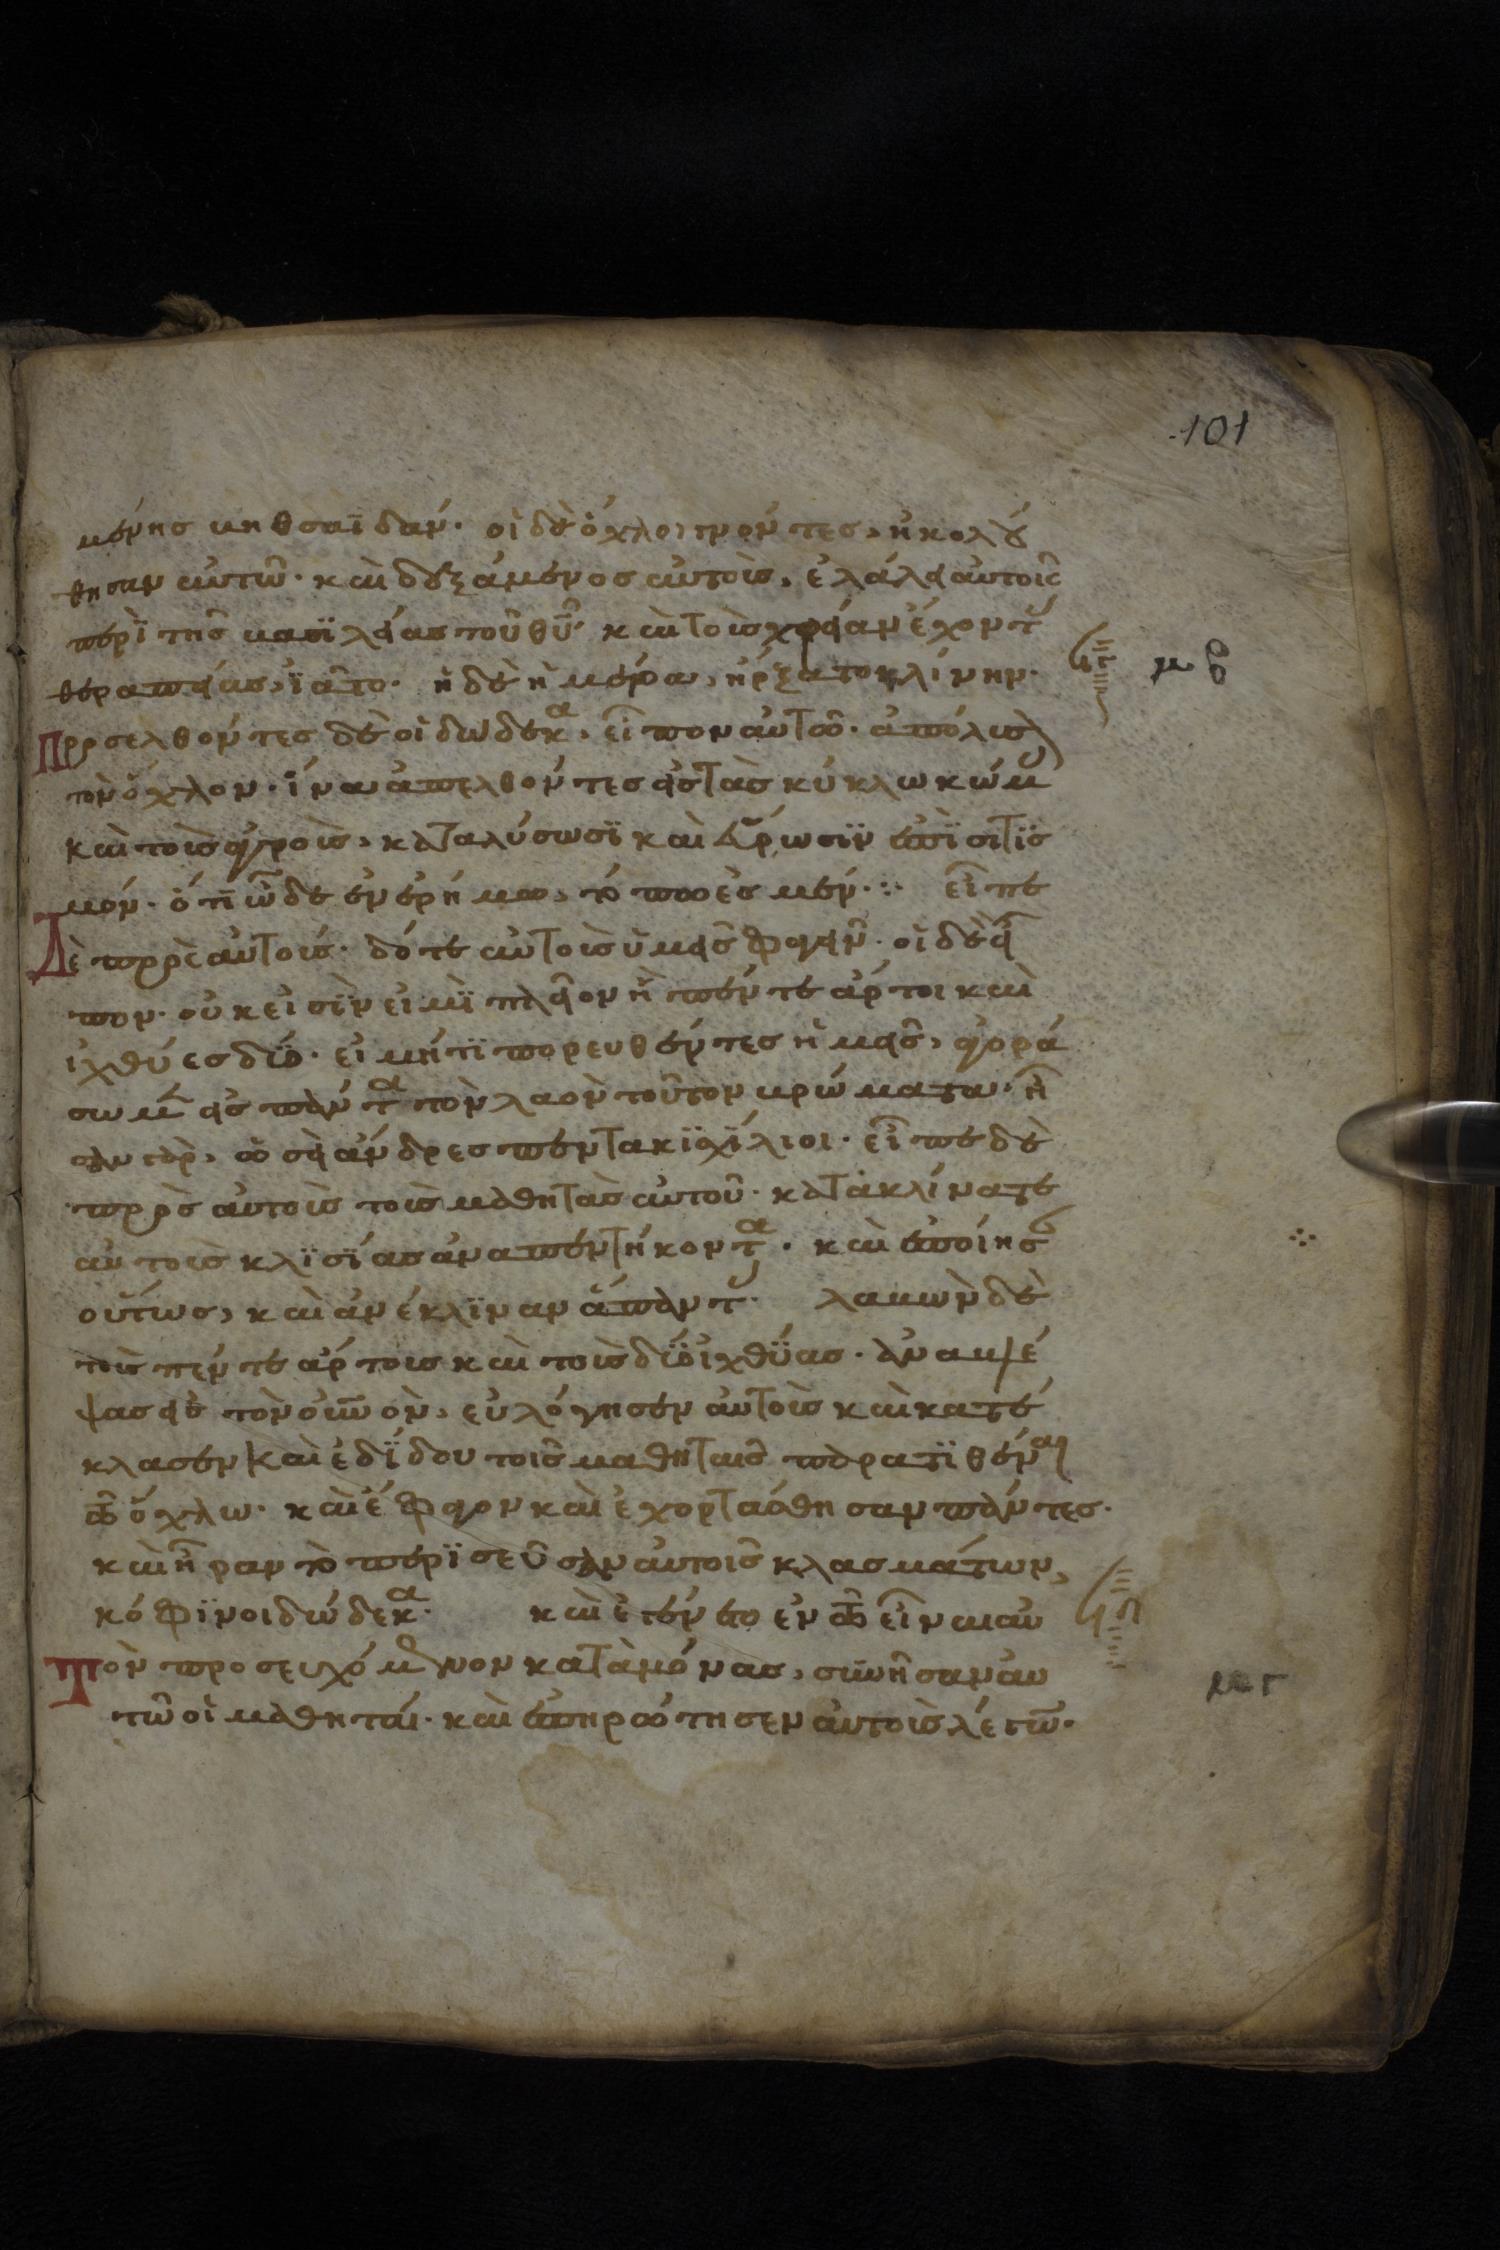 101
μένης βηθσαϊδάν· οἱ δὲ ὄχλοι γνόντες, ἠκολού
θησαν αὐτῶ· καὶ δεξάμενος αὐτοὺς, ἐλάλει αὐτοῖς
περὶ τῆς βασϊλείας τοῦ θῦ· καὶ τοὺς χρείαν ἔχοντ
θεραπείας, ϊᾶτο· ἡ δὲ ἡμέρα, ἤρξατο κλίνην·
Προσελθόντες δὲ οἱ δώδεκα, εἶπον αὐτῶ· ἀπόλυσον
τὸν ὄχλον· ἵνα ἀπελθόντες εἰς τὰς κύκλω κώμ
καὶ τοὺς ἀγροὺς, καταλύσωσϊ καὶ εὕρωσϊν ἐπϊσιτϊς
μόν· ὅτι ὧδε ἐν ἐρήμω, τόπω ἐσμέν· εἶπε
Δὲ πρὸς αὐτούς· δότε αὐτοὺς ὑμεῖς φαγεῖν· οἱ δὲ εἶ
πον· οὐκ εἰσϊν εἰμὶ πλεῖον ἢ πέντε ἄρτοι καὶ
ἰχθύες δύο· εἰ μήτϊ πορευθέντες ἡμεῖς, ἀγορά
σωμ εἰς πάντα τὸν λαὸν τοῦτον βρώματα· ἦ
σαν γὰρ, ὡσεὶ ἄνδρες πεντακϊχίλιοι· εἶπε δὲ
πρὸς αὐτοὺς τοὺς μαθητὰς αὐτοῦ· κατακλίνατε
αὐτοὺς κλϊσϊας ἀνα πεντήκοντα· καὶ ἐποίησ
οὕτως, καὶ ἀνέκλϊναν ἅπαντ· λαβὼν δὲ
τοὺς πέντε ἄρτους καὶ τοὺς δύο ἰχθύας· ἀναβλέ
ψας εἰς τὸν οὐνον, εὐλόγησεν αὐτοὺς καὶ κατέ
κλασεν καὶ ἐδϊδου τοῖς μαθηταῖς παρατϊθέναι
τῶ ὄχλω· καὶ ἔφαγον καὶ ἐχορτάσθησαν πάντες·
καὶ ἦραν τὸ περϊσεῦσαν αὐτοῖς κλασμάτων,
κόφϊνοι δώδεκα· καὶ ἐγένετο ἐν τῶ εἶναι αὐ
Τὸν προσευχόμενον κατὰ μόνας, συνῆσαν αὐ
τῶ οἱ μαθηταί· καὶ ἐπηρώτησεν αὐτοὺς λέγων·
μβ
μγ